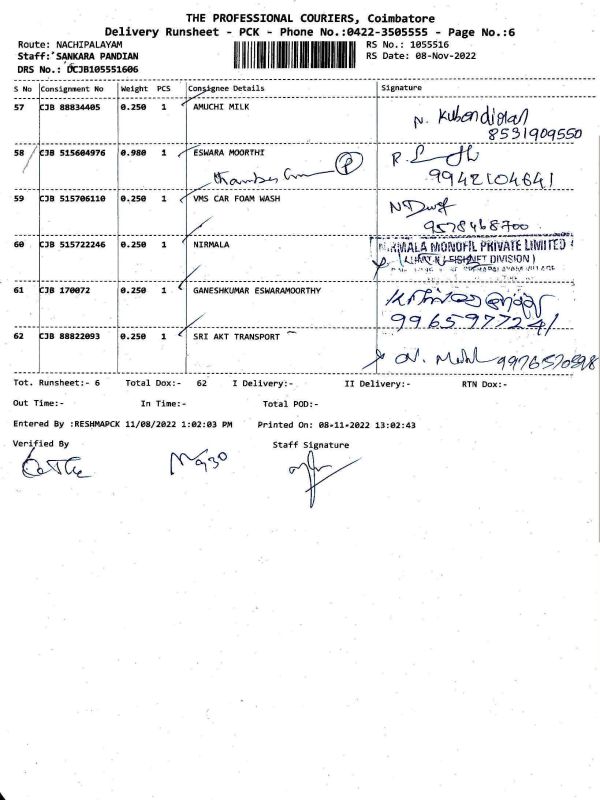 THE PROFESSIONAL COURIERS, Coimbatore
Delivery Runsheet - PCK - Phone No.:0422-3505555 - Page No.:6
Route: NACHIPALAYAM RS No.: 1055516
Staff: SANKARA PANDIAN RS Date: 08-Nov-2022
DRS No.: DCJB105551606
S No Consignment No Weight PCS Consignee Details Signature
57 CJB 88834405 0.250 1 AMUCHI MILK
8531909550
58 CJB 515604976 0.980 1 ESWARA MOORTHI
P
9942104641
59 CJB 515706110 0.250 1 VMS CAR FOAM WASH
9578468700
60 CJB 515722246 0.250 1 NIRMALA
NIRMALA MONOFIL PRIVATE LIMITED
FISHNET DIVISION )
61 CJB 170072 0.250 1 GANESHKUMAR ESWARAMOORTHY
9965977241
62 CJB 88822093 0.250 1 SRI AKT TRANSPORT
Tot. Runsheet:- 6 Total Dox:- 62 I Delivery:- II Delivery:- RTN Dox:-
Out Time:- In Time:- Total POD:-
Entered By :RESHMAPCK 11/08/2022 1:02:03 PM Printed On: 08-11-2022 13:02:43
Verified By Staff Signature